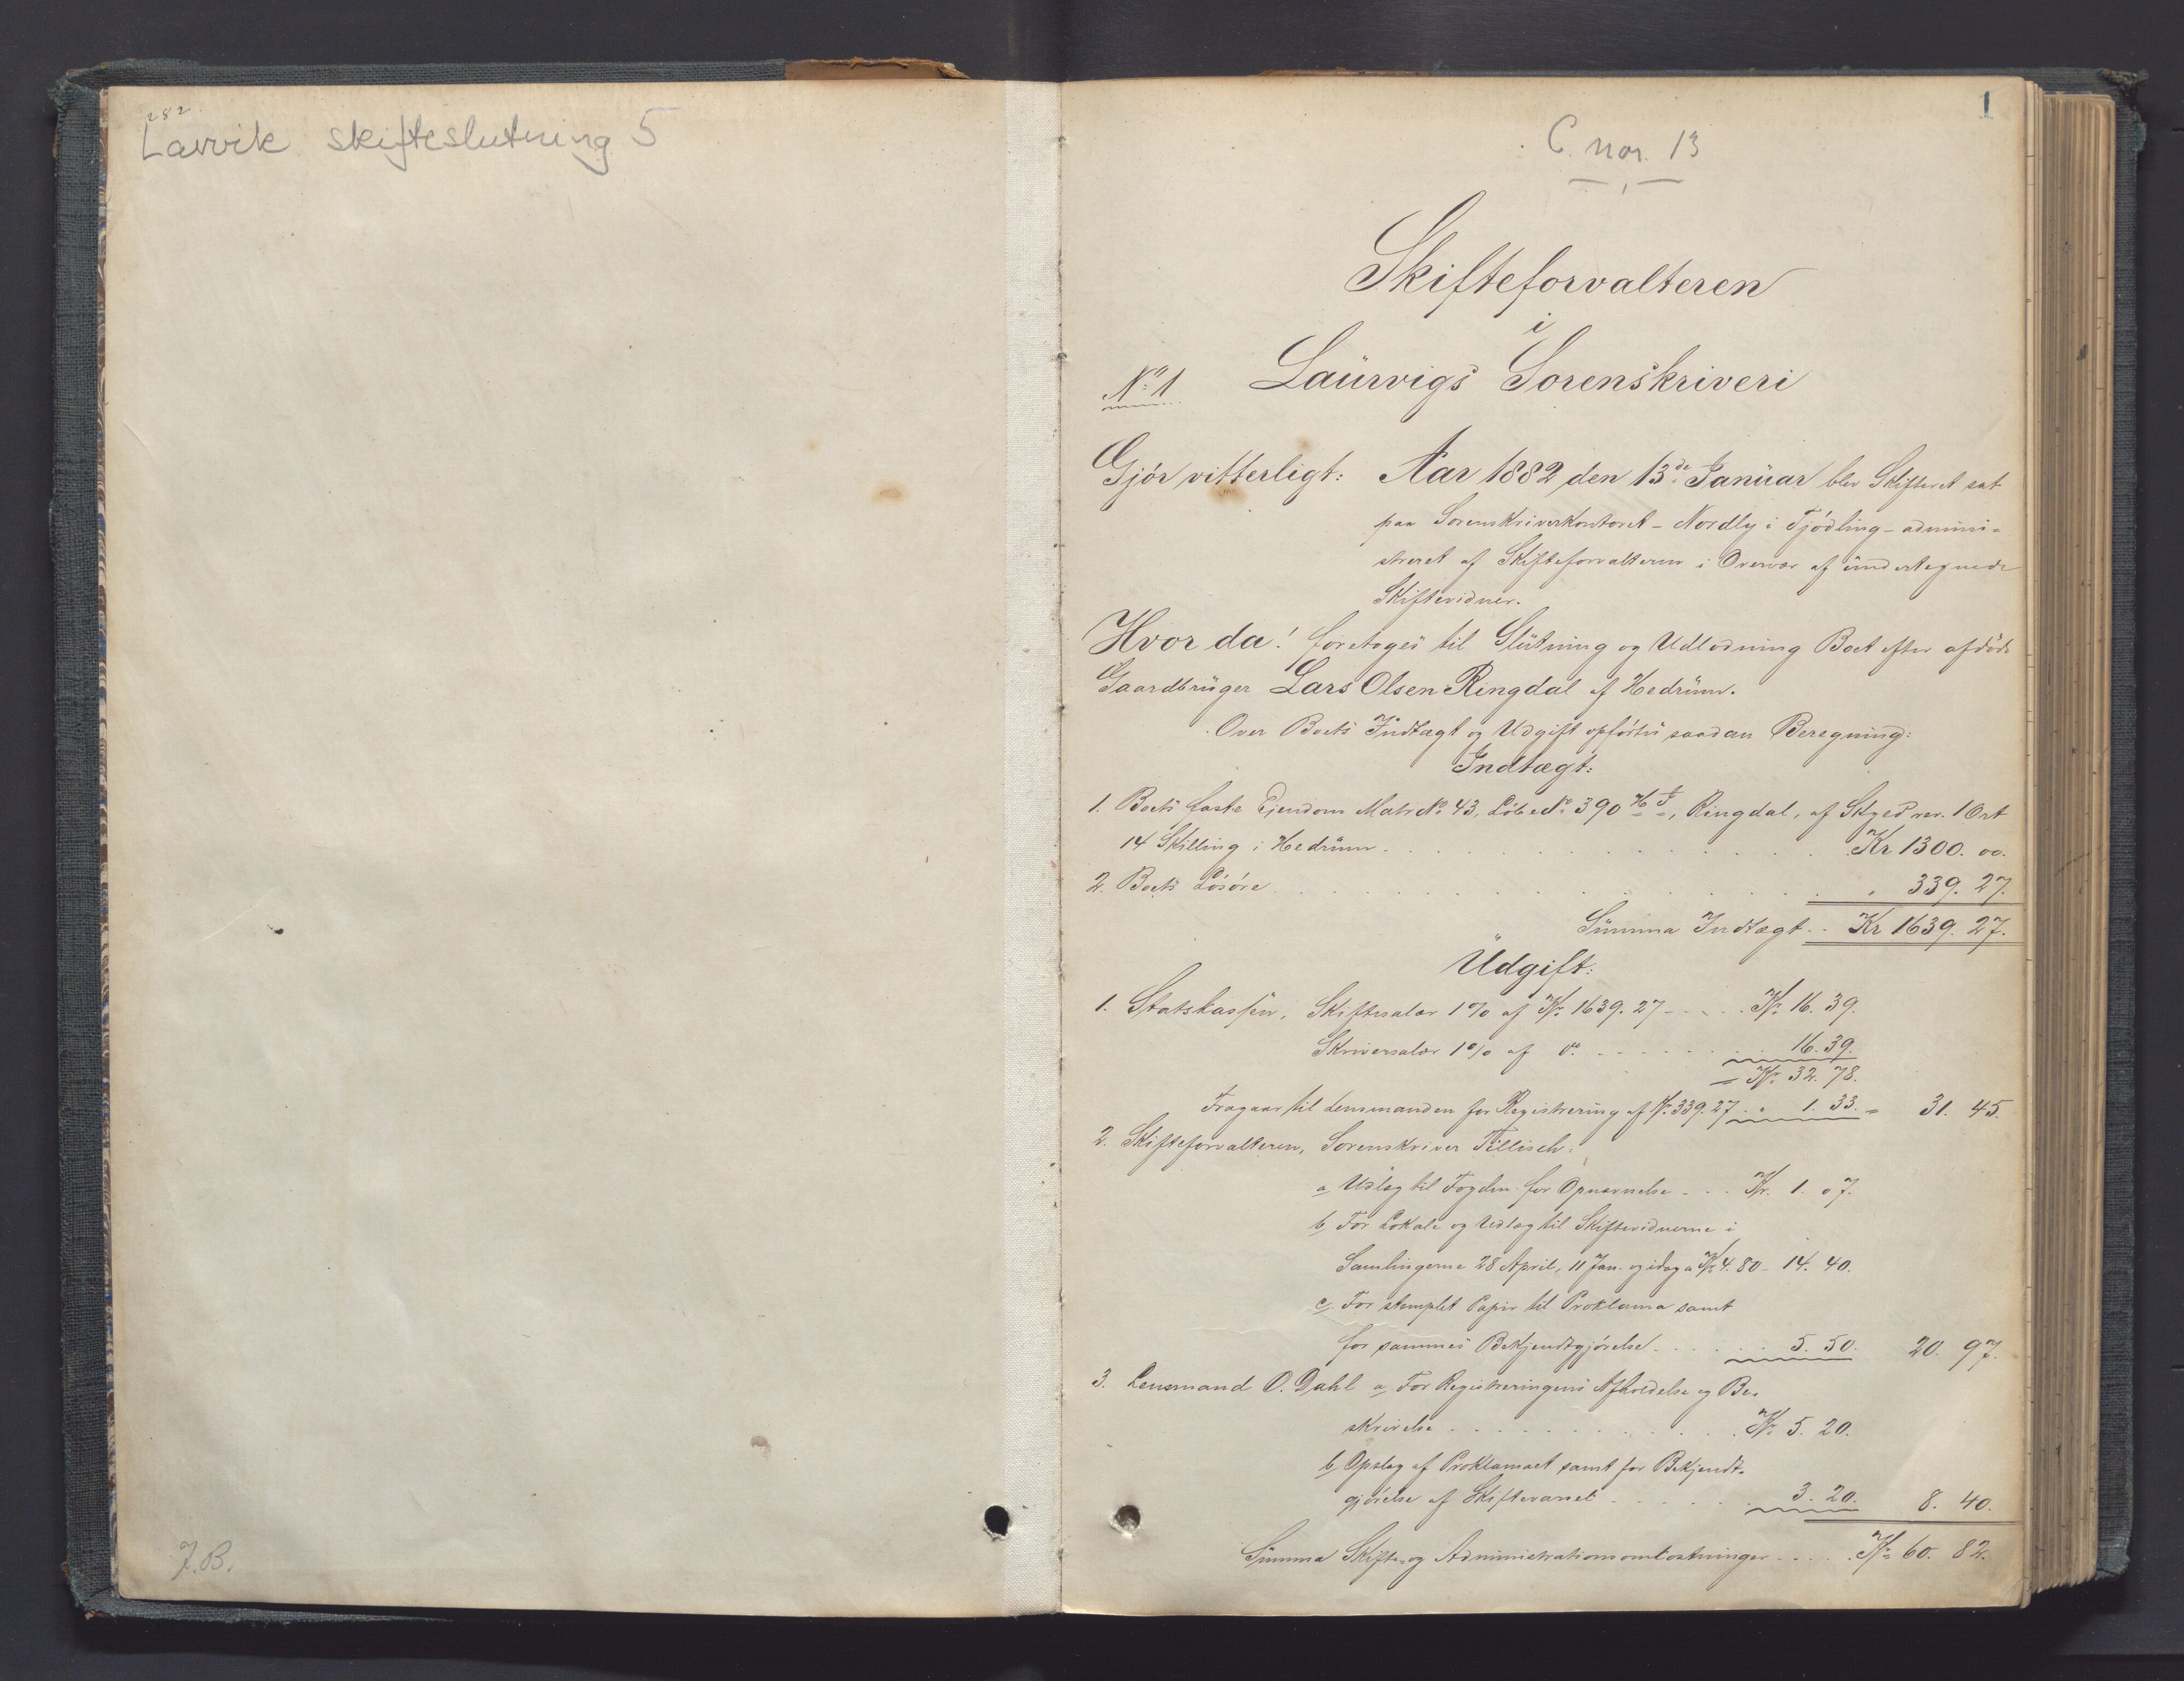 282
Larvik skifteslutning 5
J.B.
1
C. nor. 13
Skifteforvalteren
i
No 1 Laurvigs Sorenskriveri
Gjör vitterligt: Aar 1882 den 13de Januar blev Skifteret sat
paa Sorenskriverkontoret - Nordly i Tjödling - admini=
streret af Skifteforvalteren i Overvær af undertegnede
Skiftevidner.
Hvor da! foretoges til Slutning og Udlodning Boet efter afdöde
Gaardbruger Lars Olsen Ringdal af Hedrum.
Over Boets Indtægt og Udgift opförtes saadan Beregning:
Indtægt:
1. Boets faste Eiendom Matr No 43, Löbe No 390, Ringdal, af Skyld rev. 1 Ort
14 Skilling i Hedrum. Kr 1300. 00.
2. Boets Lösöre " 339. 27.
Summa Indtægt .. Kr 1639. 27.
Udgift:
1. Statskassen, Skiftesalær 1% af Kr. 1639. 27 - Kr. 16. 39.
Skriversalær 1% af do. 16. 39.
= Kr. 32. 78.
Fragaar til Lensmanden for Registrering af Kr. 339. 27 " 1. 33. = 31. 45.
2. Skifteforvalteren, Sorenskriver Tillisch:
a, Udlæg til Fogden for Opnævnelse - Kr. 1. 07.
b, For Lokale og Udlæg til Skiftevidnerne i
Samlingerne 28 April, 11 Jan. og idag a Kr 4. 80 - 14. 40.
c, For stemplet Papir til Proklama samt
for sammes Bekjendtgjörelse 5. 50. 20. 97.
3. Lensmand O. Dahl a, For Registreringens Afholdelse og Be=
skrivelse Kr. 5. 20.
b, Opslag af Proklamaet samt for Bekjendt=
gjörelse af Skiftevarsel 3. 20. 8. 40.
Summa Skifte- og Administrationsomkostninger Kr. 60. 82.